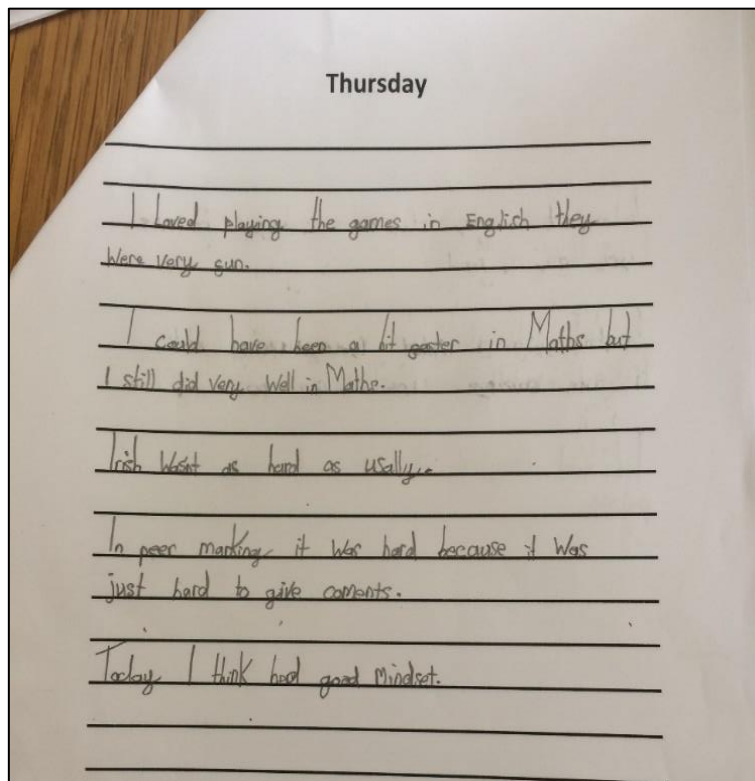 Thursday
I Loved playing the games in English they
Were very fun.
I could have been a bit faster in Maths but
I still did very well in Maths.
Irish wasnt as hard as usally.
In peer marking it was hard because it was
just hard to give coments.
Today I think had good mindset.